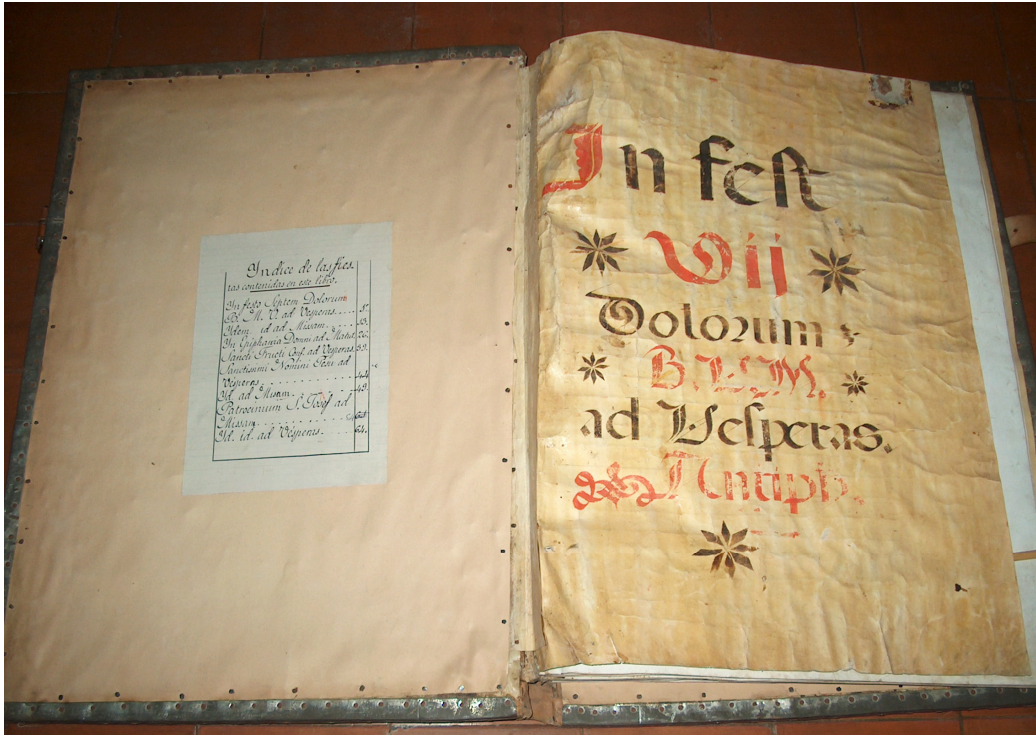 Yndice de las fies.
tas contenidas en este libro.
In festo Septem Dolorum
B. M. V. ad Vesperas..... 5.
Ydem id ad Missam.... 13.
Yn Epiphania Domni ad Matut. 26.
Sancti Fructi Conf. ad Vesperas. 39.
Sanctissimi Nomini Jesu ad
Vesperas............ 44
Yd. ad Misam........ 49.
Patrocinium S. Josef ad
Missam............
Yd. id. ad Vesperas.... 64.
In fest
Vij
Dolorum
B.V.M.
ad Vesperas.
Antiph.